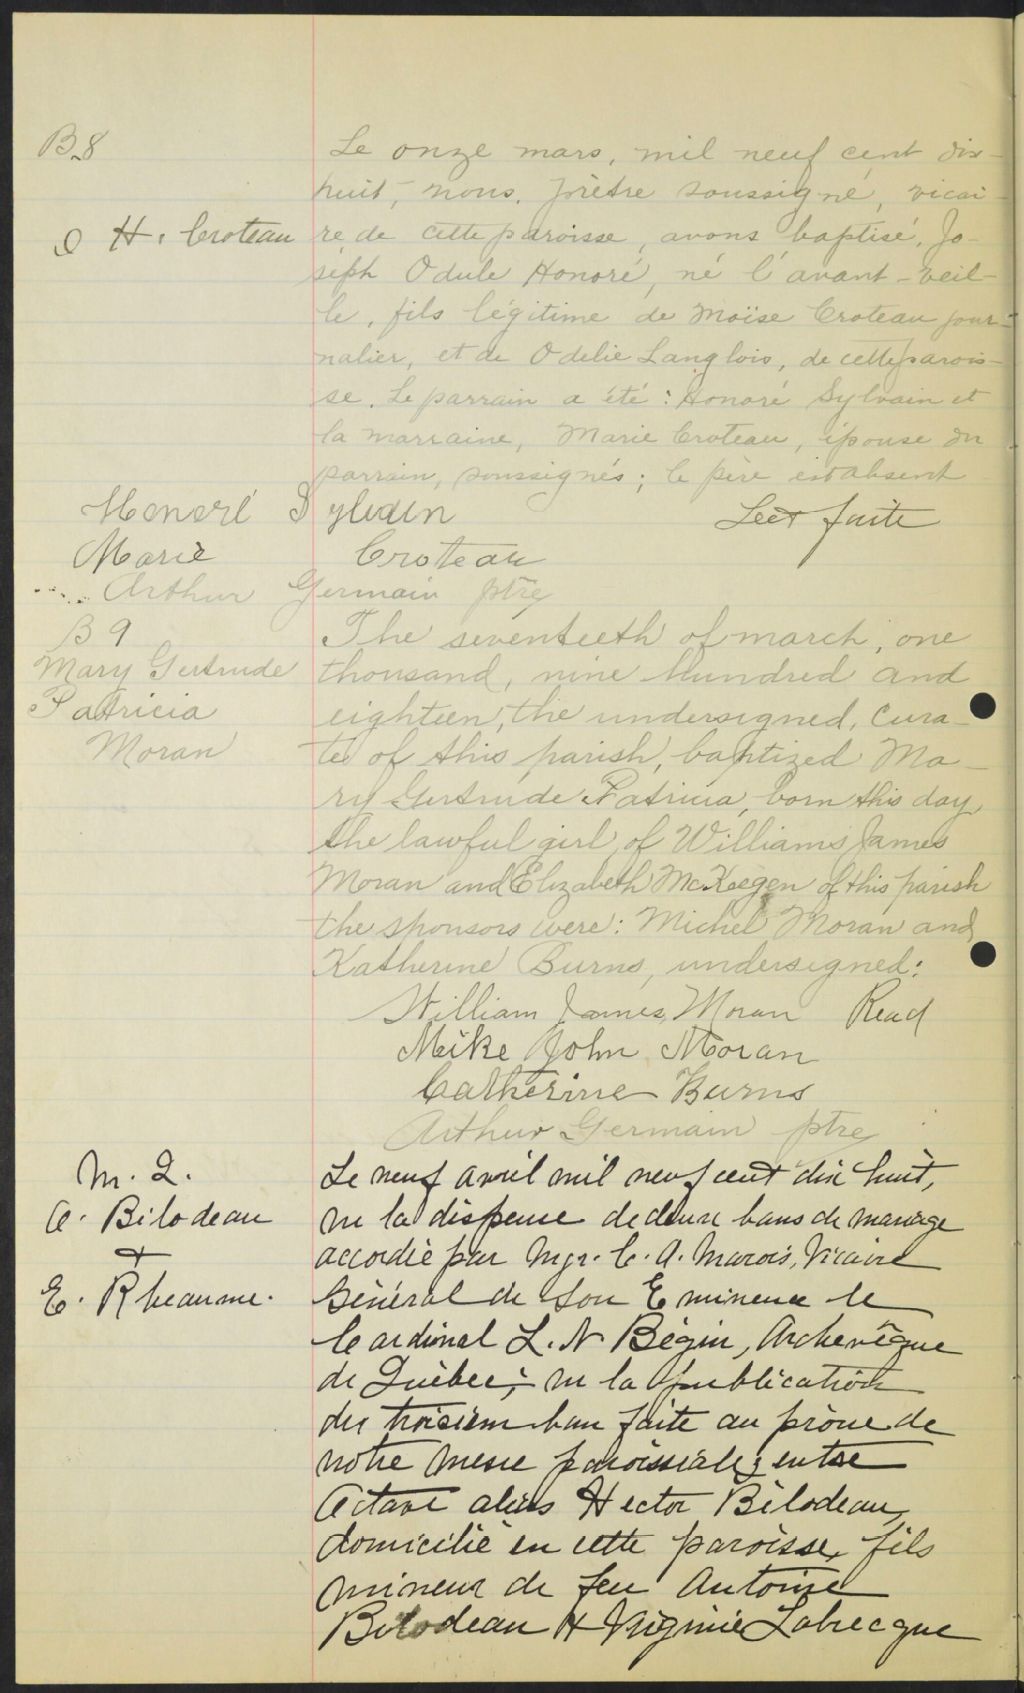 B.8
Le onze mars, mil neuf cent dix-
huit, nous, prêtre soussigné, vicai-
O H. Croteau
re, de cette paroisse, avons baptisé, Jo-
seph Odule Honoré, né l'avant-veil-
le, fils légitime de Moïse Croteau jour-
nalier, et de Odelie Langlois, de cette parois-
se. Le parrain a été: Honoré Sylvain et
la marraine, Marie Croteau, épouse du
parrain, soussignés; le père est absent
Honoré Sylvain Lect faite
Marie Croteau
Arthur Germain ptre
B 9
Mary Gertrude
Patricia
Moran
The seventeeth of march, one
thousand, nine hundred and
eighteen, the undersigned, cura-
te of this parish, baptized Ma-
ry Gertrude Patricia, born this day,
the lawful girl of Williams James
Moran and Elizabeth McKeegen of this parish
the sponsors were: Michel Moran and
Katherine Burns, undersigned:
William James Moran Read
Mike John Moran
Catherine Burns
Arthur Germain ptre
M. 2.
O. Bilodeau
+
E. Rheaume.
Le neuf avril mil neuf cent dix huit,
vu la dispense de deux bans de mariage
accordée par Mgr. C. A. Marois, Vicaire
Général de Son Eminence le
Cardinal L. N Bégin, Archevêque
de Québec; vu la publication
du troisième ban faite au prône de
notre messe paroissiale; entre
Octave alias Hector Bilodeau,
domicilié en cette paroisse, fils
mineur de feu Antoine
Bilodeau & Virginie Labrecque